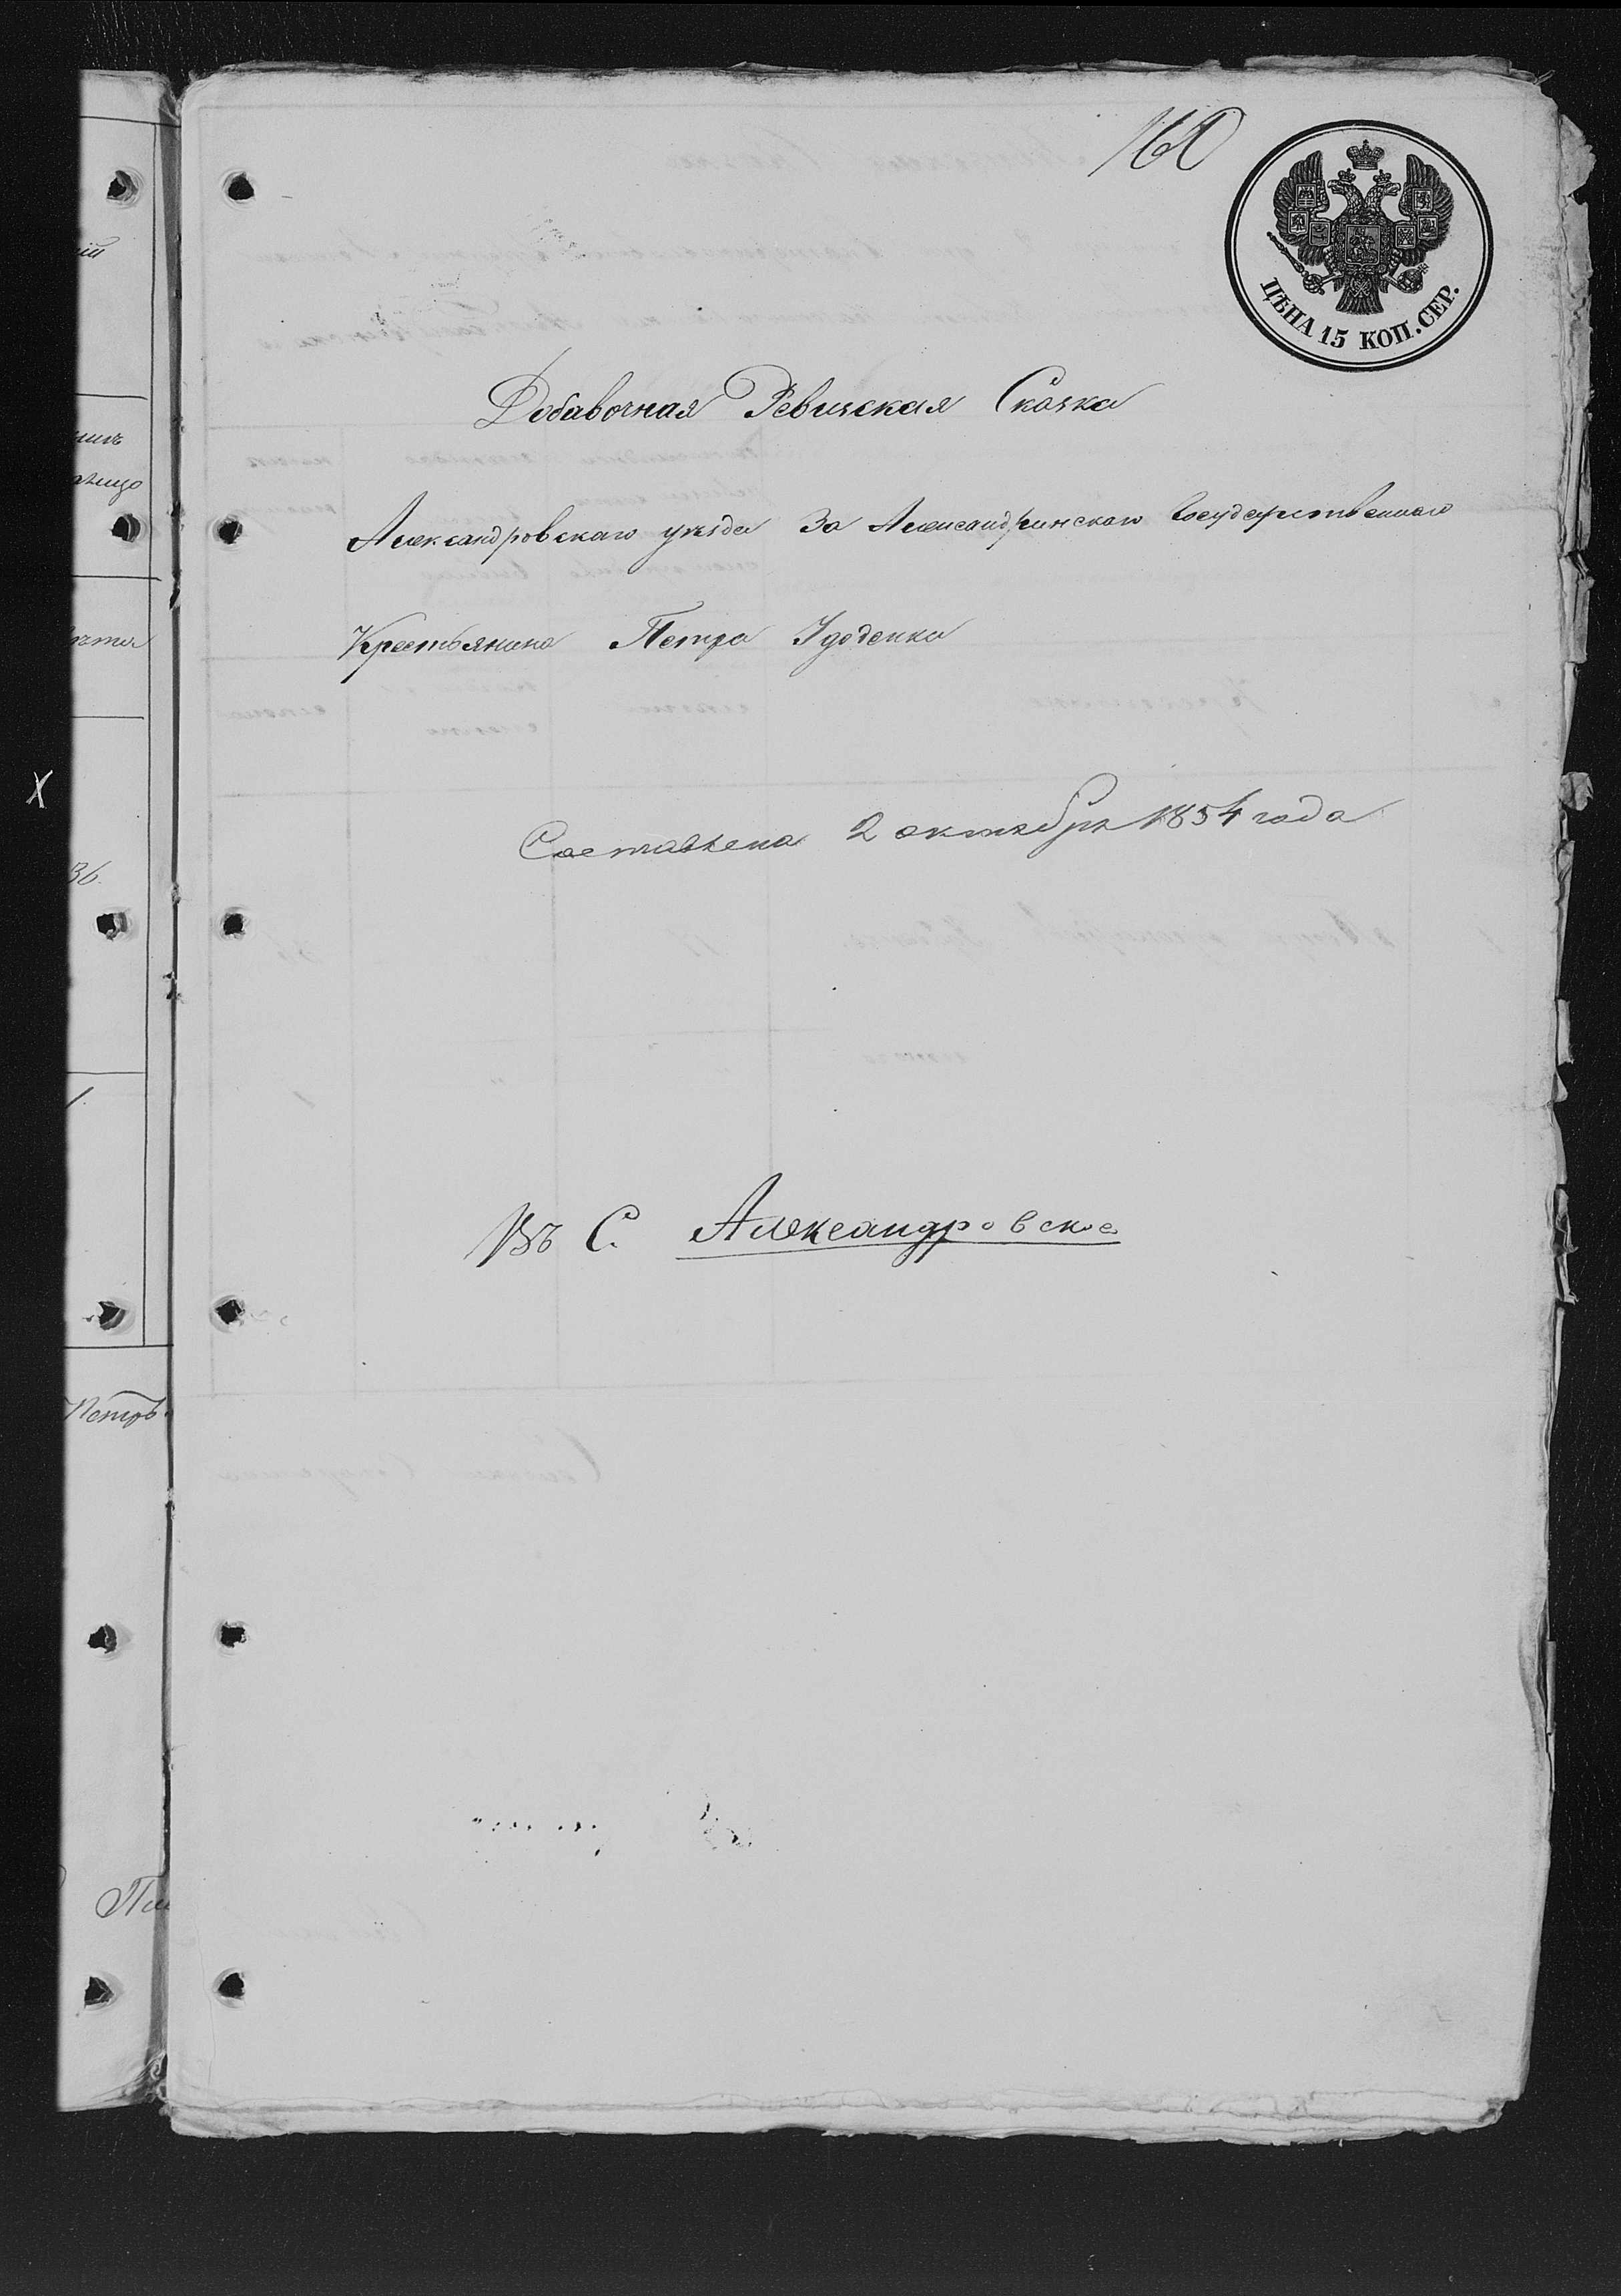 160
ЦѢНА 15 КОП. СЕР.
Добавочная Ревизская Сказка
Александровскаго уѣзда За Александринскаго Государственнаго
Крестьянина Петра Удоденка
Составлена 2 октября 1854 года
Въ С. Александровское
36.
Петръ